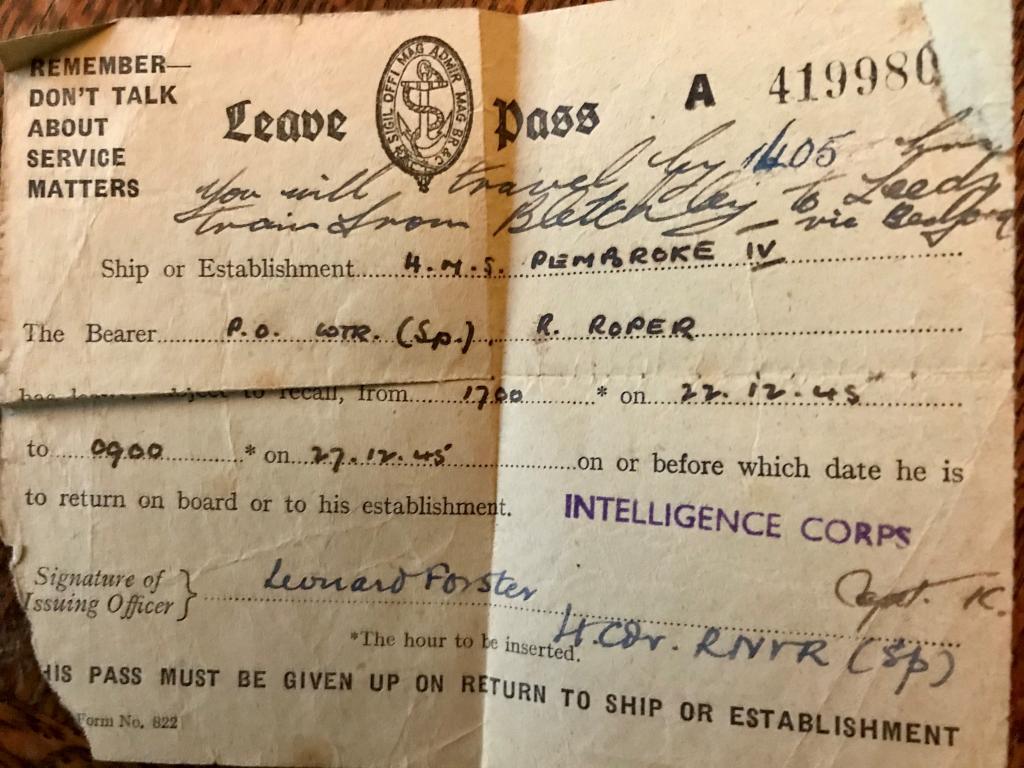 REMEMBER—
DON'T TALK
ABOUT
SERVICE
MATTERS
Leave Pass
SIGIL OFFI MAG ADMIR MAG BR &C
A 419980
You will travel by 1405
train from Bletchley to Leeds
via Bedford
Ship or Establishment H.M.S. PEMBROKE IV
The Bearer P.O. WTR. (Sp.). R. ROPER
has leave, subject to recall, from 1700 * on 22.12.45
to 0900 * on 27.12.45 on or before which date he is
to return on board or to his establishment.
INTELLIGENCE CORPS
Signature of
Issuing Officer } Leonard Forster
Capt. K.
Lt. Cdr. RNVR (Sp)
*The hour to be inserted.
HIS PASS MUST BE GIVEN UP ON RETURN TO SHIP OR ESTABLISHMENT
Form No. 822